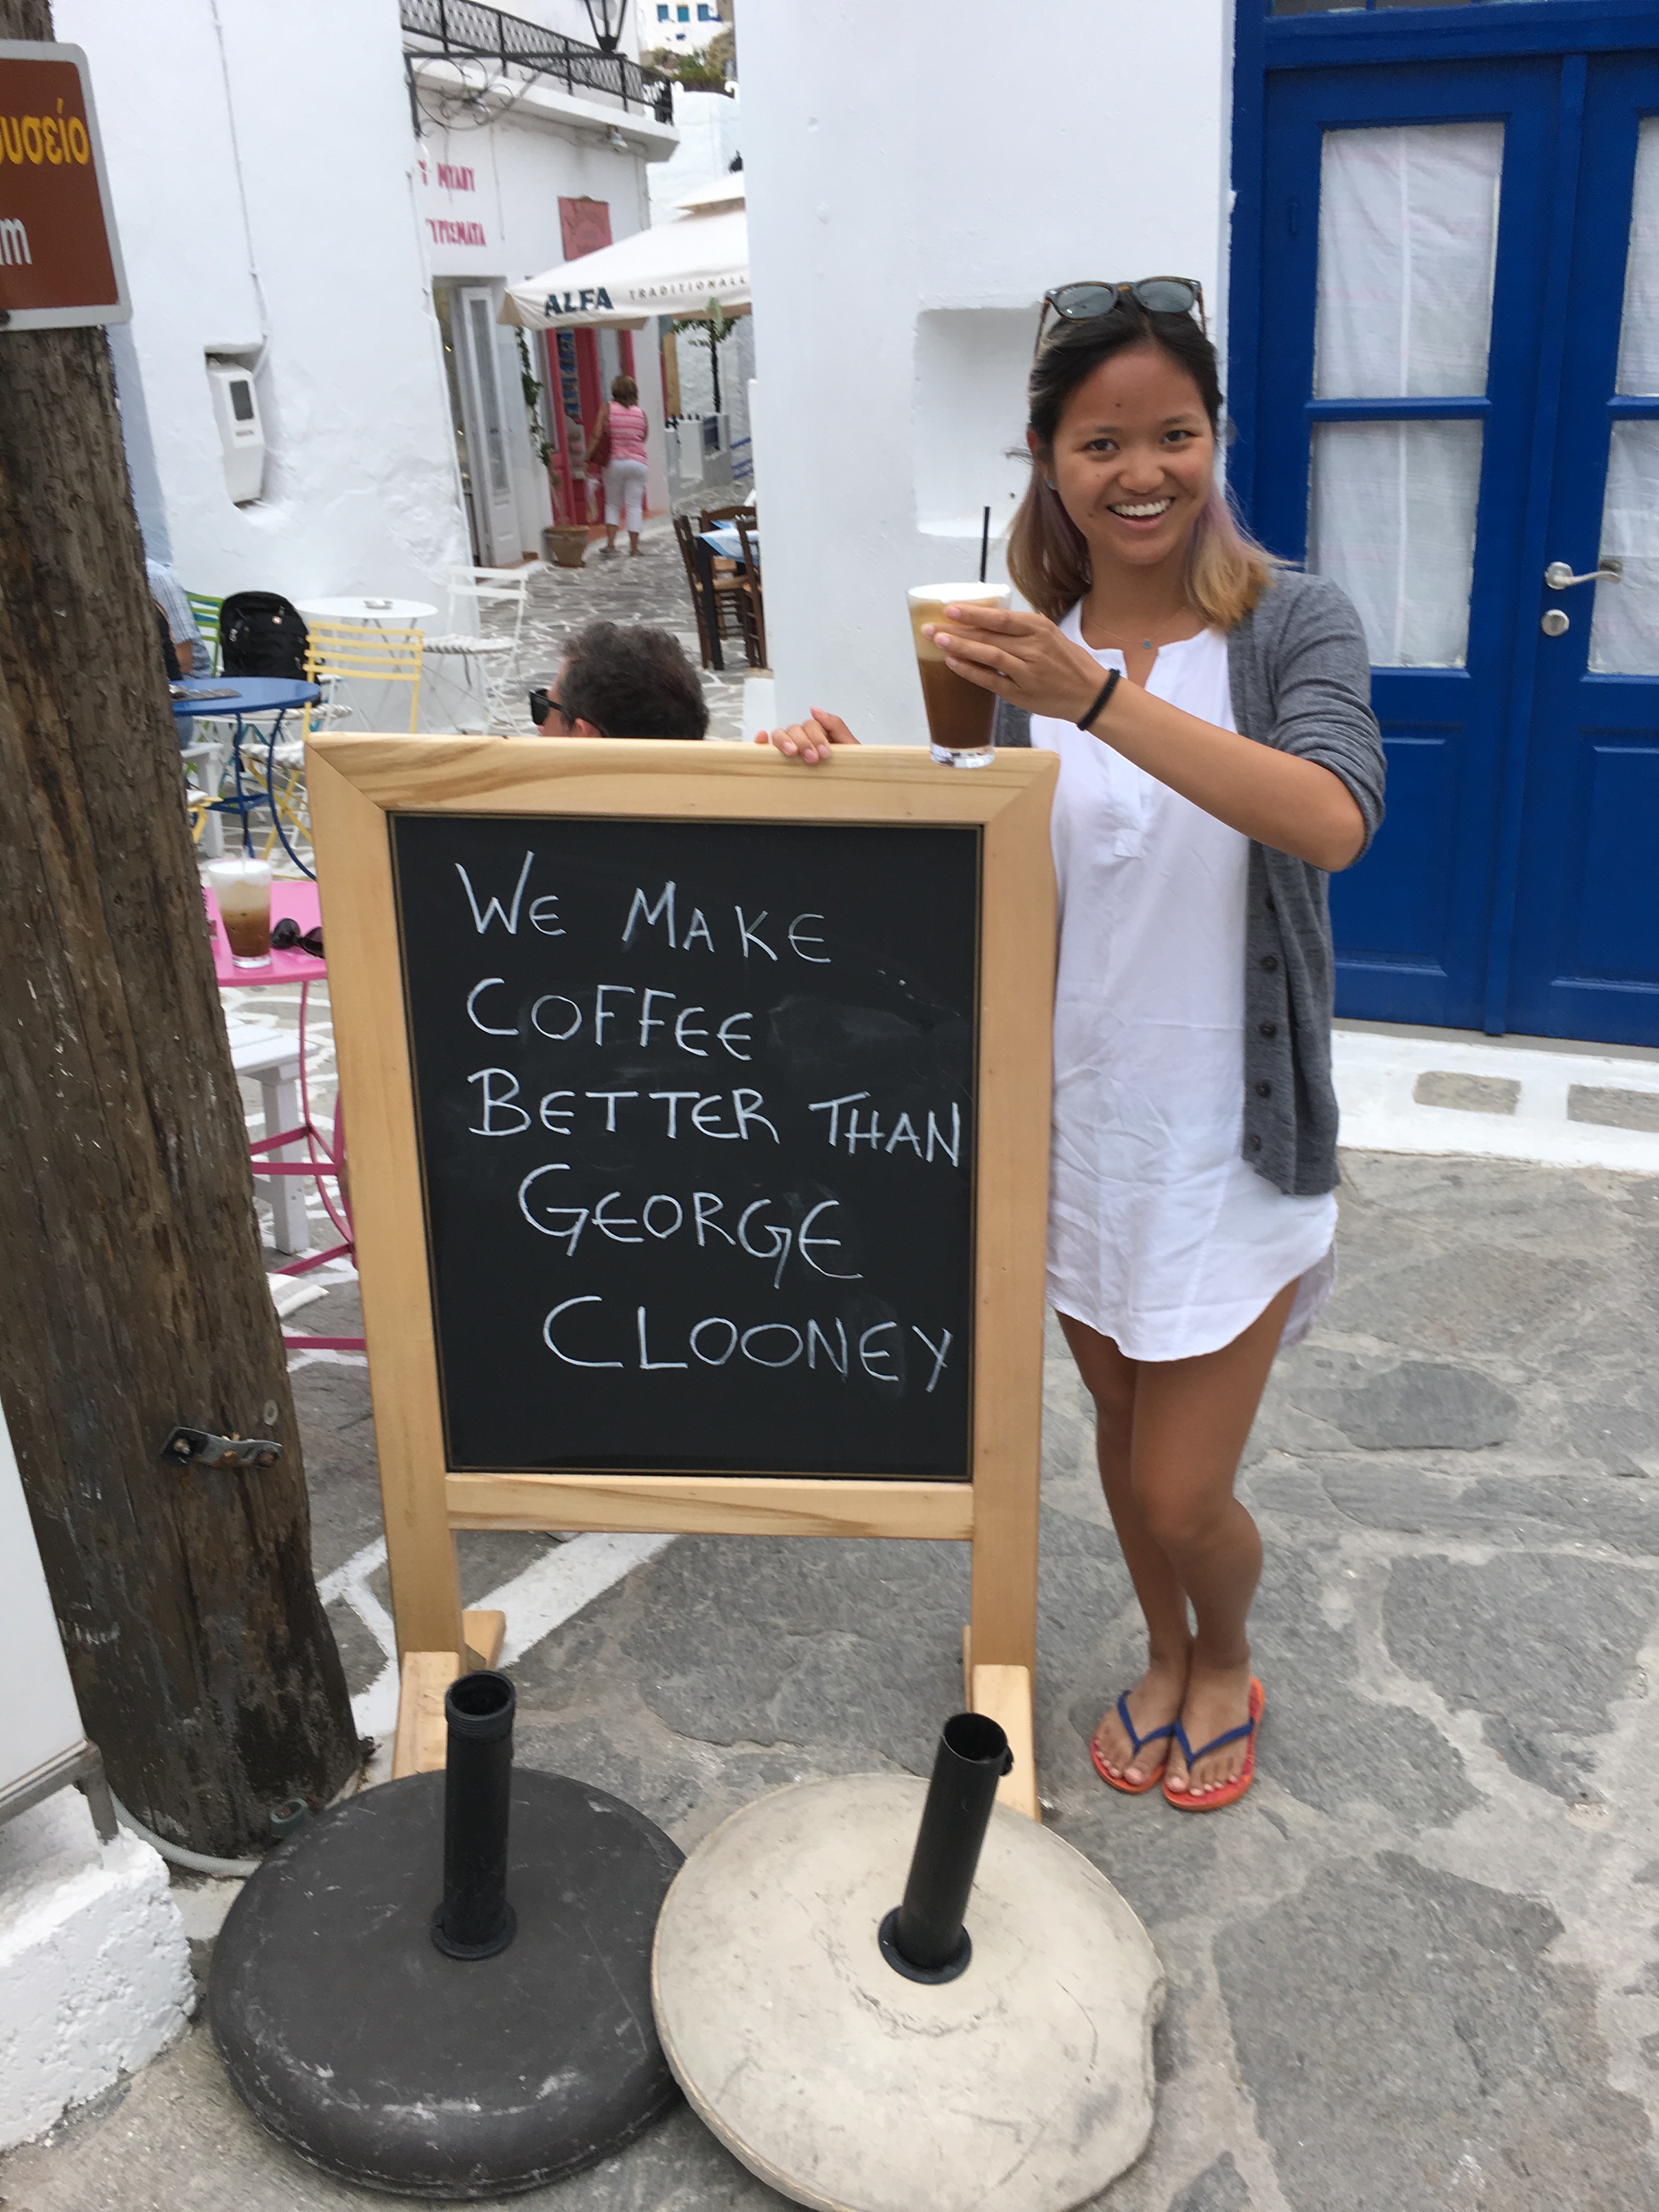 υσείο
m
ΜΥΛΟΥ
ALFA TRADITIONALL
WE MAKE
COFFEE
BETTER THAN
GEORGE
CLOONEY